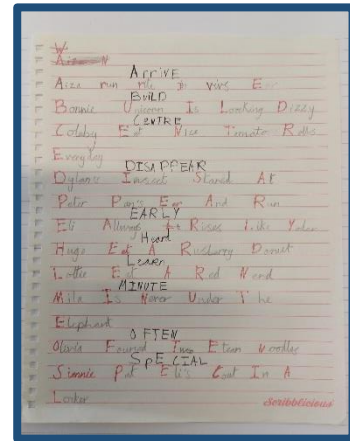 W
ArrivE
Aiza run
BUILD
Bonnie Unicorn Is Looking Dizzy
CENTRE
Colaby Eat Nice Tomator Rolls
Everyday
DISAPPEAR
Dylans Insect Stared At
Peter Pan's Ear And Run
EARLY
Eli Always Rises Like
Heard
Hugo Eat A Rusberry Donut
LearN
Lottie Eat A Red Nond
MINUTE
Mila Is Never Under The
Elephant
OFTEN
Olivia Found Two Eten noodles
SpECIAL
Simnie Put Eli's Coat In A
Locker
Scribblicious